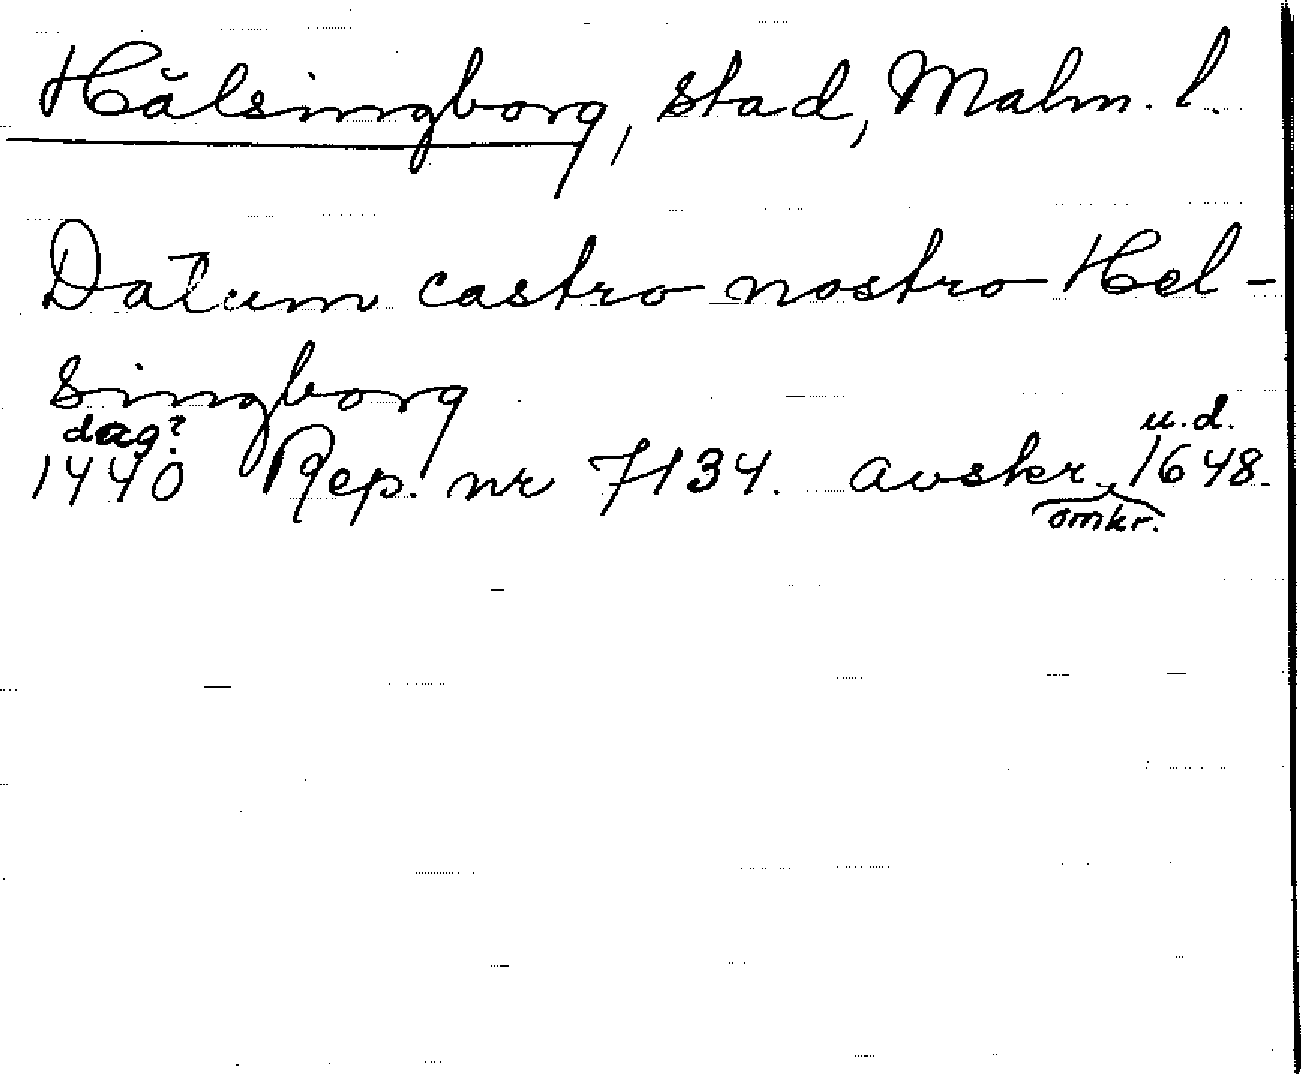 Hälsingborg, stad, Malm. l.
Datum castro nostro Hel-
singborg
dag? u.d.
1440 Rep. nr 7134. avskr. 1648.
omkr.